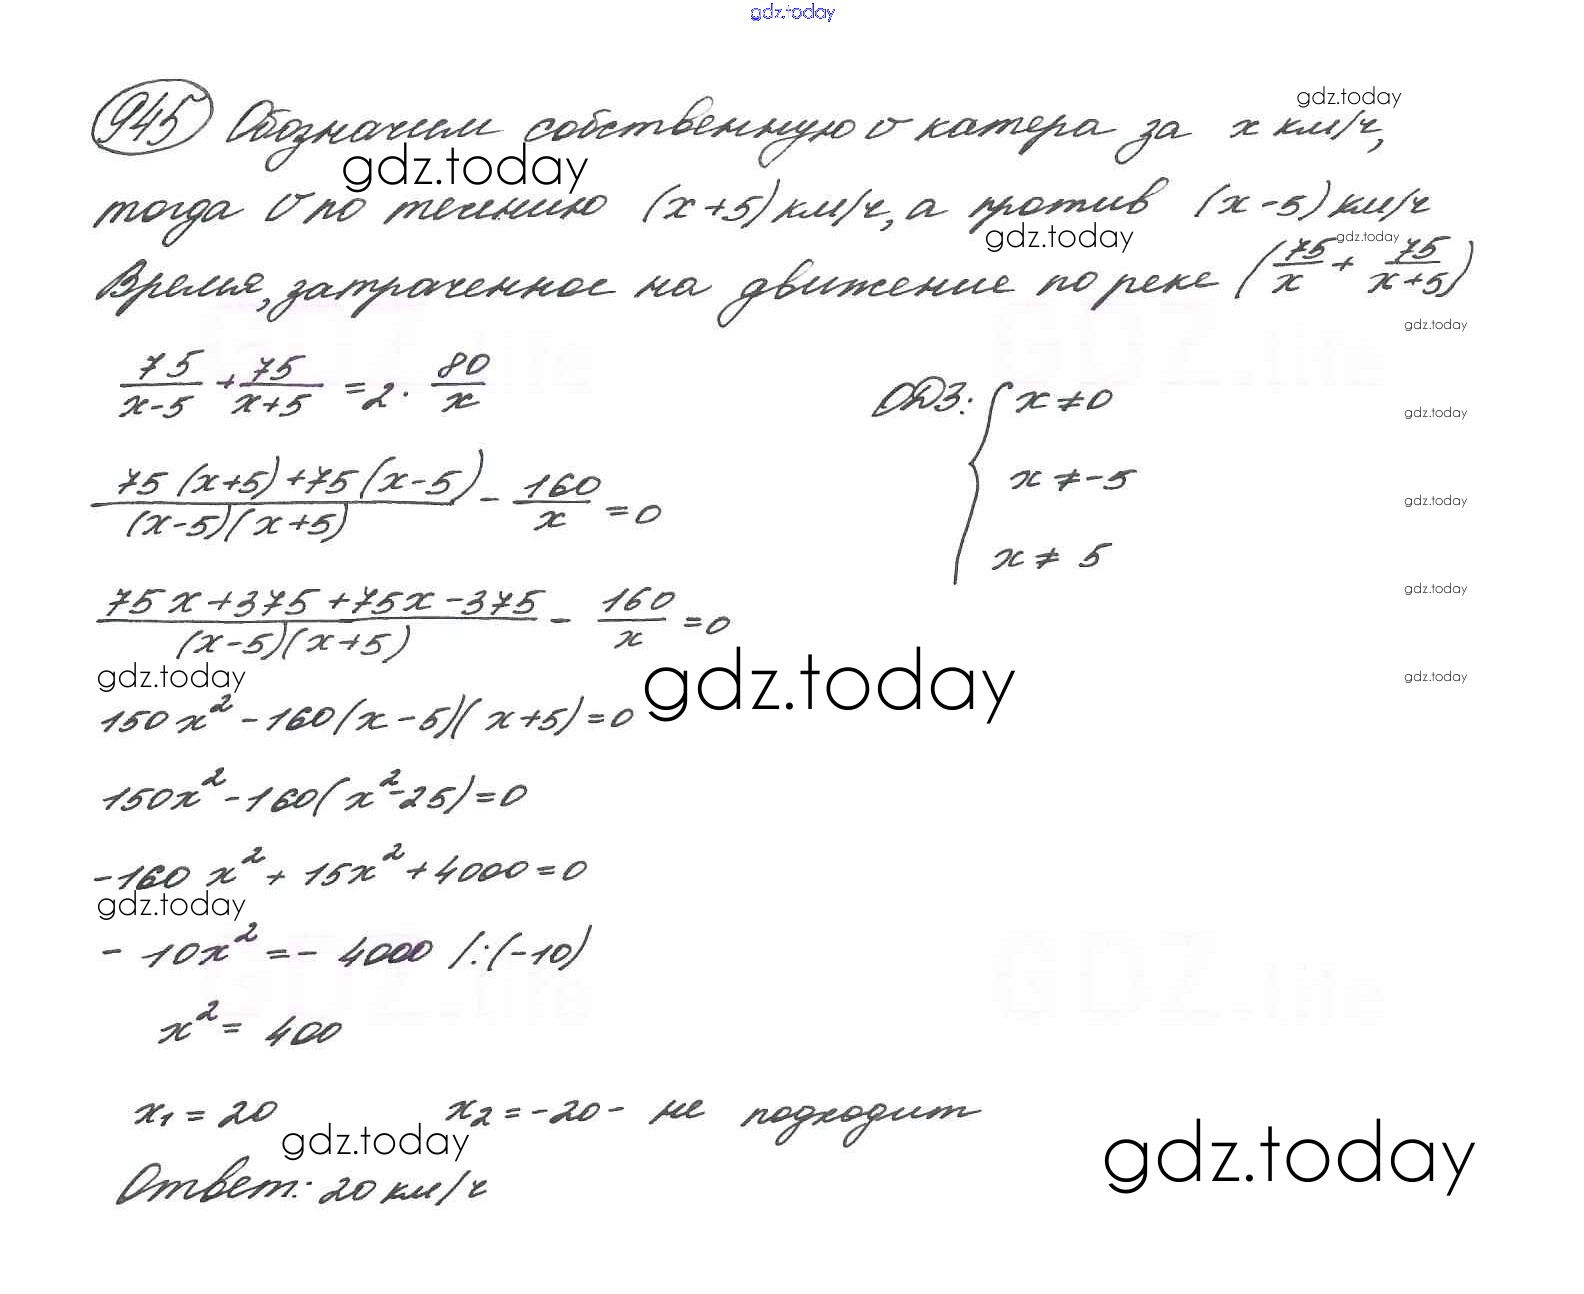 gdz.today
gdz.today
945 Обозначим собственную v катера за x км/ч,
gdz.today
тогда v по течению (x+5) км/ч, а против (x-5) км/ч
gdz.today
gdz.today
Время, затраченное на движение по реке (75/x + 75/(x+5))
gdz.today
75/(x-5) + 75/(x+5) = 2 · 80/x
ОДЗ: { x ≠ 0
gdz.today
x ≠ -5
(75(x+5)+75(x-5))/((x-5)(x+5)) - 160/x = 0
gdz.today
x ≠ 5
gdz.today
(75x+375+75x-375)/((x-5)(x+5)) - 160/x = 0
gdz.today
gdz.today
gdz.today
150x² - 160(x-5)(x+5) = 0
150x² - 160(x²-25) = 0
-160x² + 15x² + 4000 = 0
gdz.today
-10x² = -4000 /:(-10)
x² = 400
x₁ = 20 x₂ = -20 - не подходит
gdz.today
gdz.today
Ответ: 20 км/ч